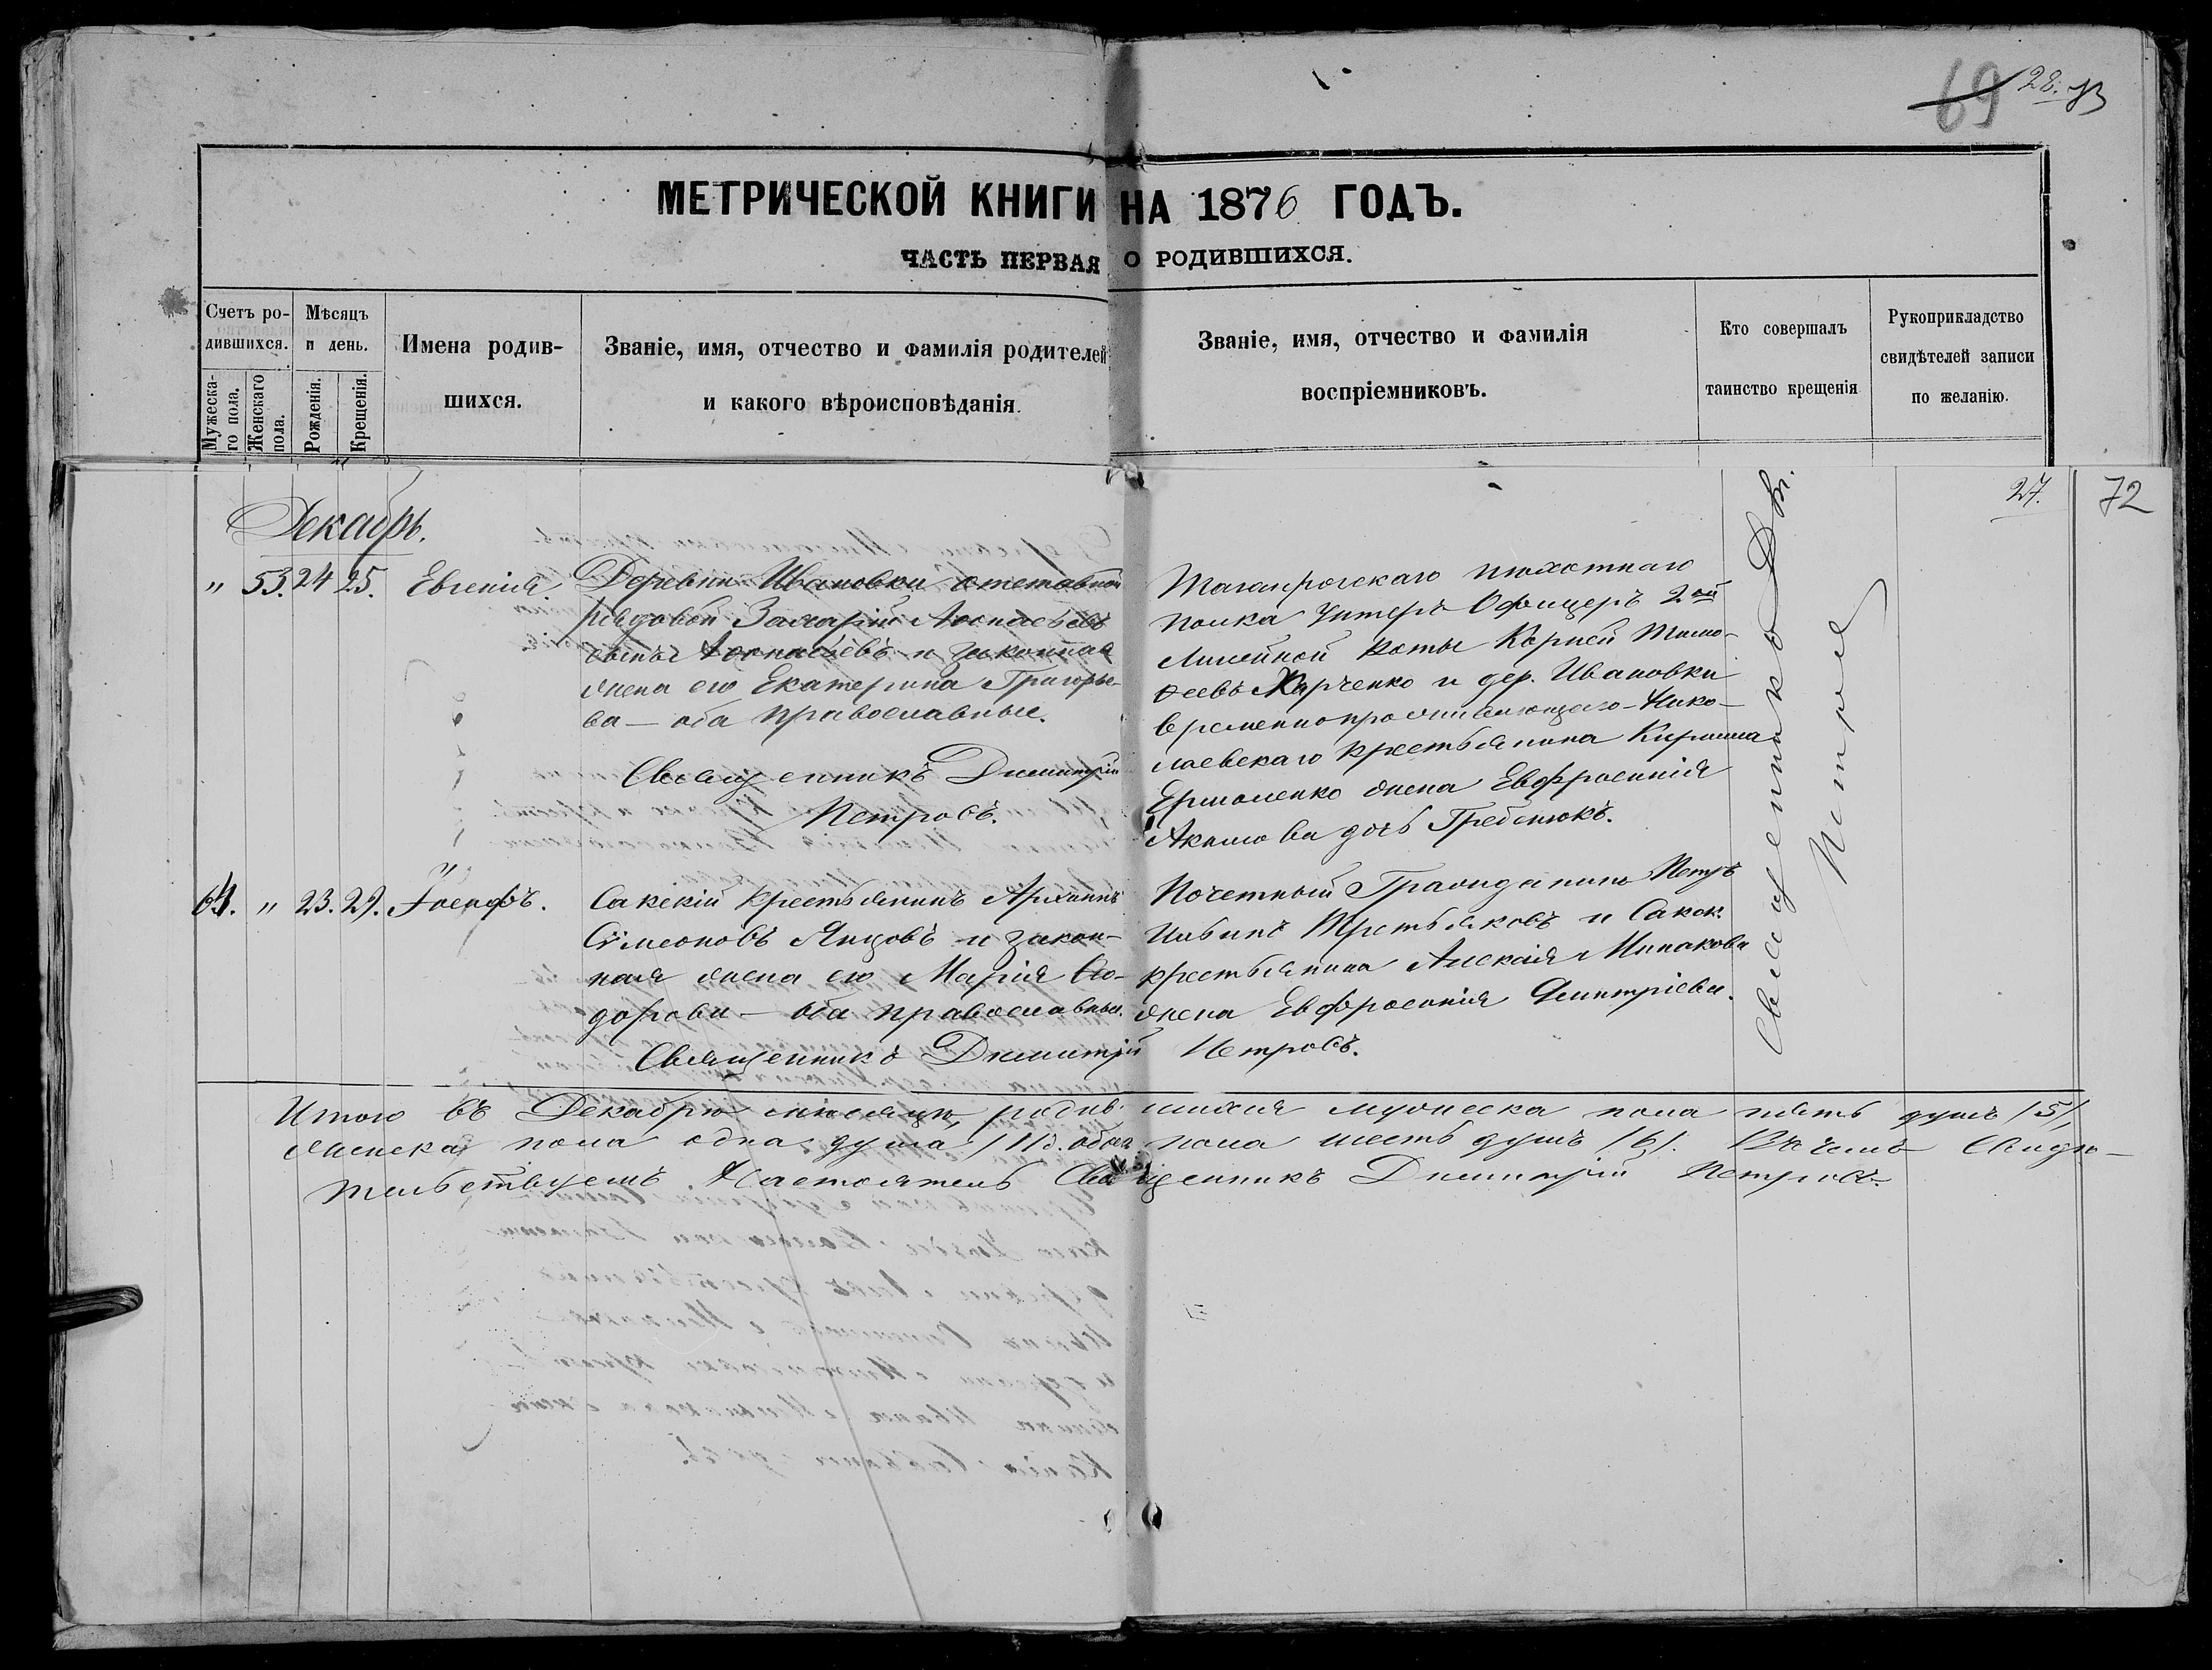 69 28.
МЕТРИЧЕСКОЙ КНИГИ НА 1876 ГОДЪ.
ЧАСТЬ ПЕРВАЯ О РОДИВШИХСЯ.
Счетъ ро-
дившихся.
Мужеска-
го пола.
Женскаго
пола.
Мѣсяцъ
и день.
Рожденія.
Крещенія.
Имена родив-
шихся.
Званіе, имя, отчество и фамилія родителей
и какого вѣроисповѣданія.
Званіе, имя, отчество и фамилія
воспріемниковъ.
Кто совершалъ
таинство крещенія
Рукоприкладство
свидѣтелей записи
по желанію.
27. 72
Декабрь.
" 53. 24 25. Евгенія
Деревни Ивановки отставной
рядовой Захарій
сынъ и законная
жена его Екатерина Григорье-
ва — оба православные.
Священникъ Димитрій
Петровъ.
Таганрогскаго пѣхотнаго
полка Унтеръ Офицеръ 2ой
Линейной роты Корней Тимо-
ѳеевъ Харченко и дер. Ивановки
временнопроживающаго Нико-
лаевскаго крестьянина Кирилла
Ермоленко жена Евфросинія
Акимова дочь Гребенюкъ.
64. " 23. 29. Іосифъ.
Сакскій крестьянинъ Архиппъ
Сѵмеоновъ Янцовъ и закон-
ная жена его Марія Ѳео-
дорова — оба православные.
Священникъ Димитрій Петровъ.
Почетный Гражданинъ Петръ
Ильинъ Третьяковъ и Сакск.
крестьянина Алексія Минакова
жена Евфросинія Димитріева.
Священникъ Дм.
Петровъ
Итого въ Декабрѣ мѣсяцѣ, родившихся мужеска пола пять душъ /5/,
женска пола одна душа /1/ обоего пола шесть душъ /6/. Въ чемъ Свидѣ-
тельствуемъ Настоятель Священникъ Димитрій Петровъ.